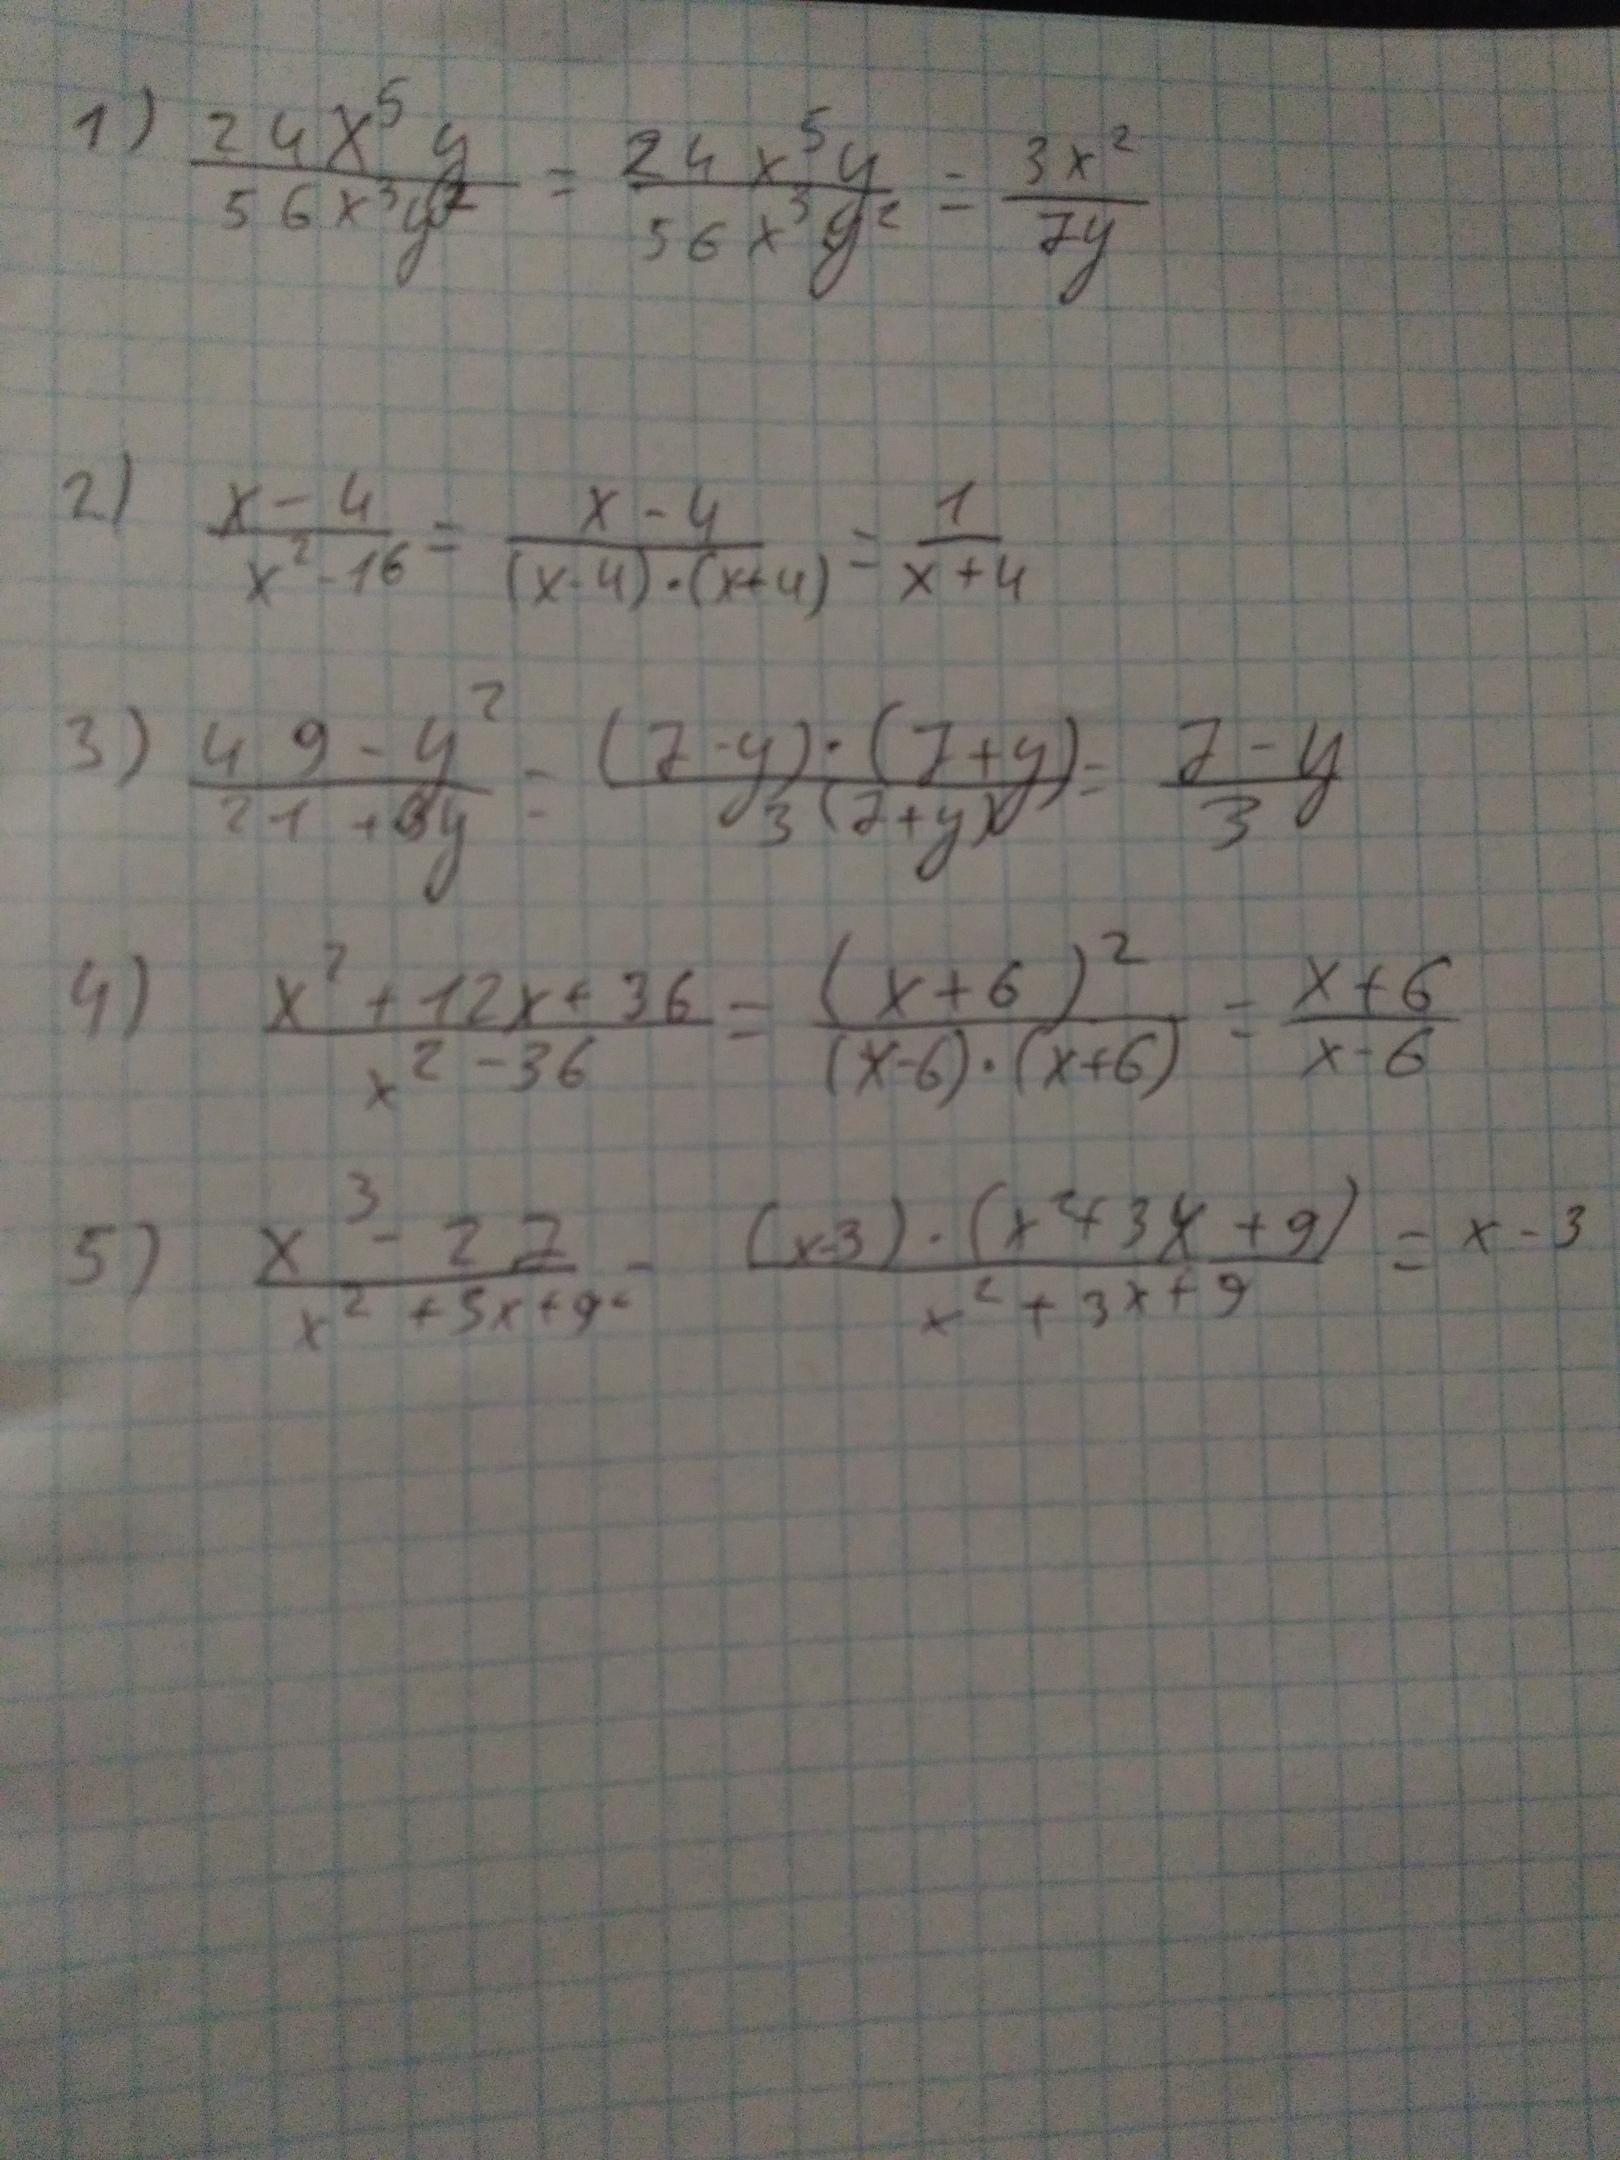 1) 24x⁵y/56x³y² = 24x⁵y/56x³y² = 3x²/7y
2) x-4/x²-16 = x-4/(x-4)·(x+4) = 1/x+4
3) 49-y²/21+3y = (7-y)·(7+y)/3(7+y) = 7-y/3
4) x²+12x+36/x²-36 = (x+6)²/(x-6)·(x+6) = x+6/x-6
5) x³-27/x²+3x+9 - (x-3)·(x²+3x+9)/x²+3x+9 = x-3